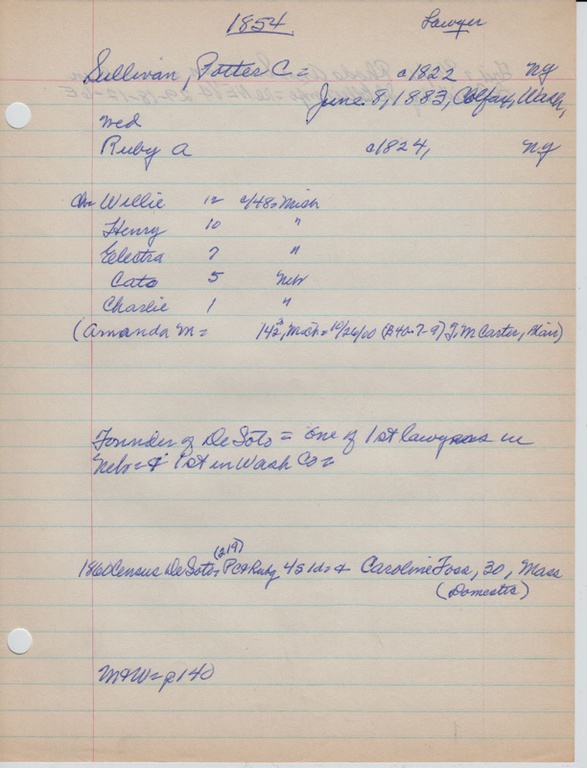 1854 Lawyer
Sullivan, Potter C= c1822 NY
June. 8, 1883, Colfax, Wash,
med
Ruby A c1824, NY
Ch= Willie 12 c/48= Mich
Henry 10 "
Electra 7 "
Cato 5 Nebr
Charlie 1 "
(Amanda M= 1842, Mich= 10/26/00 (B40-7-9) T. M Carter, Blair)
Founder of De Soto = One of 1st lawyers in
Nebr= & 1st in Wash Co=
(219)
1860 Census De Soto= PC & Ruby 4s 1d= & Caroline Foss, 30, Mass
(Domestic)
M&W= p140